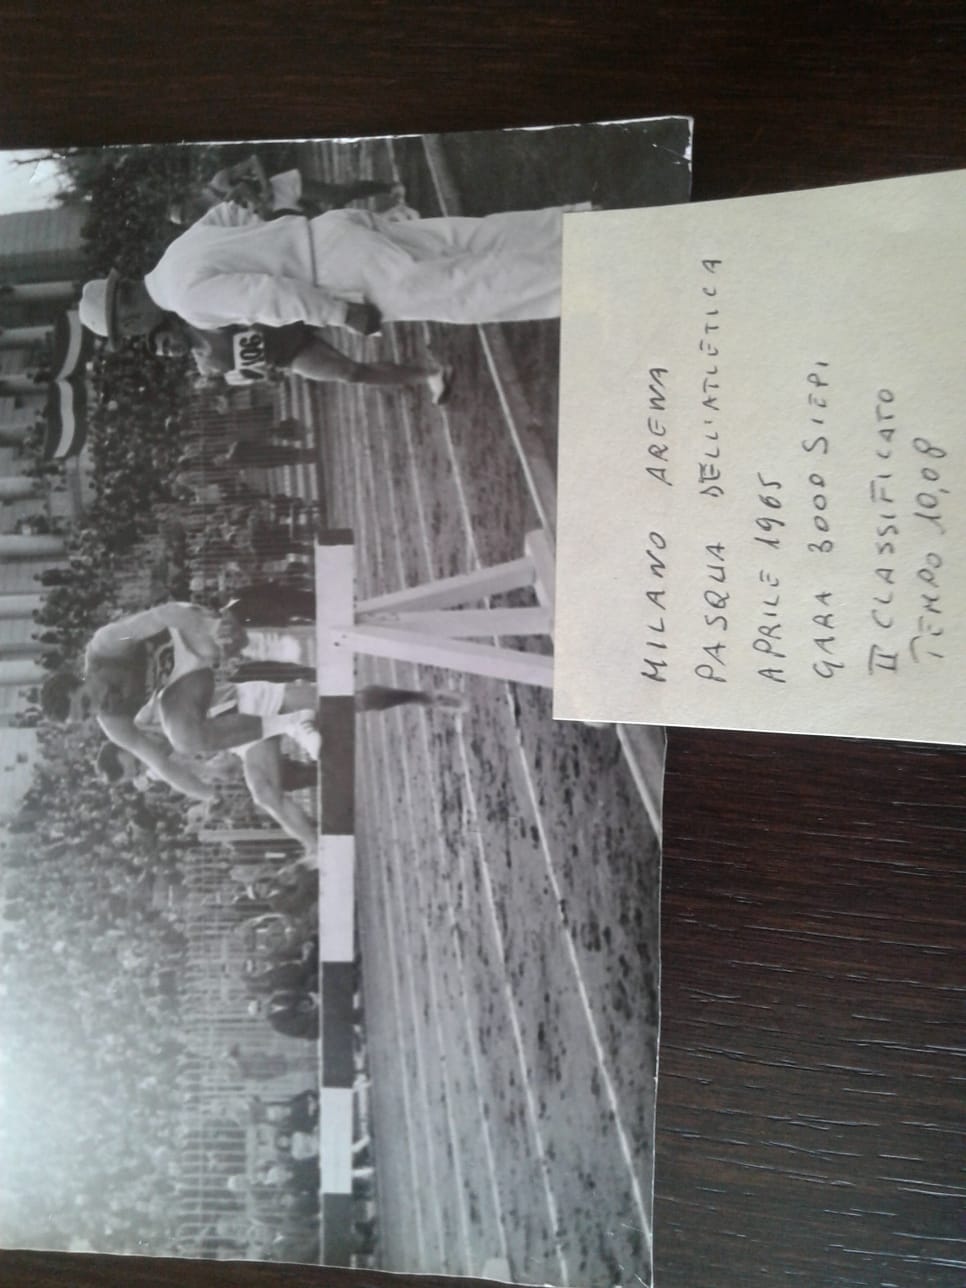 MILANO ARENA
PASQUA DELL'ATLETICA
APRILE 1965
GARA 3000 SIEPI
II CLASSIFICATO
TEMPO 10,08
106